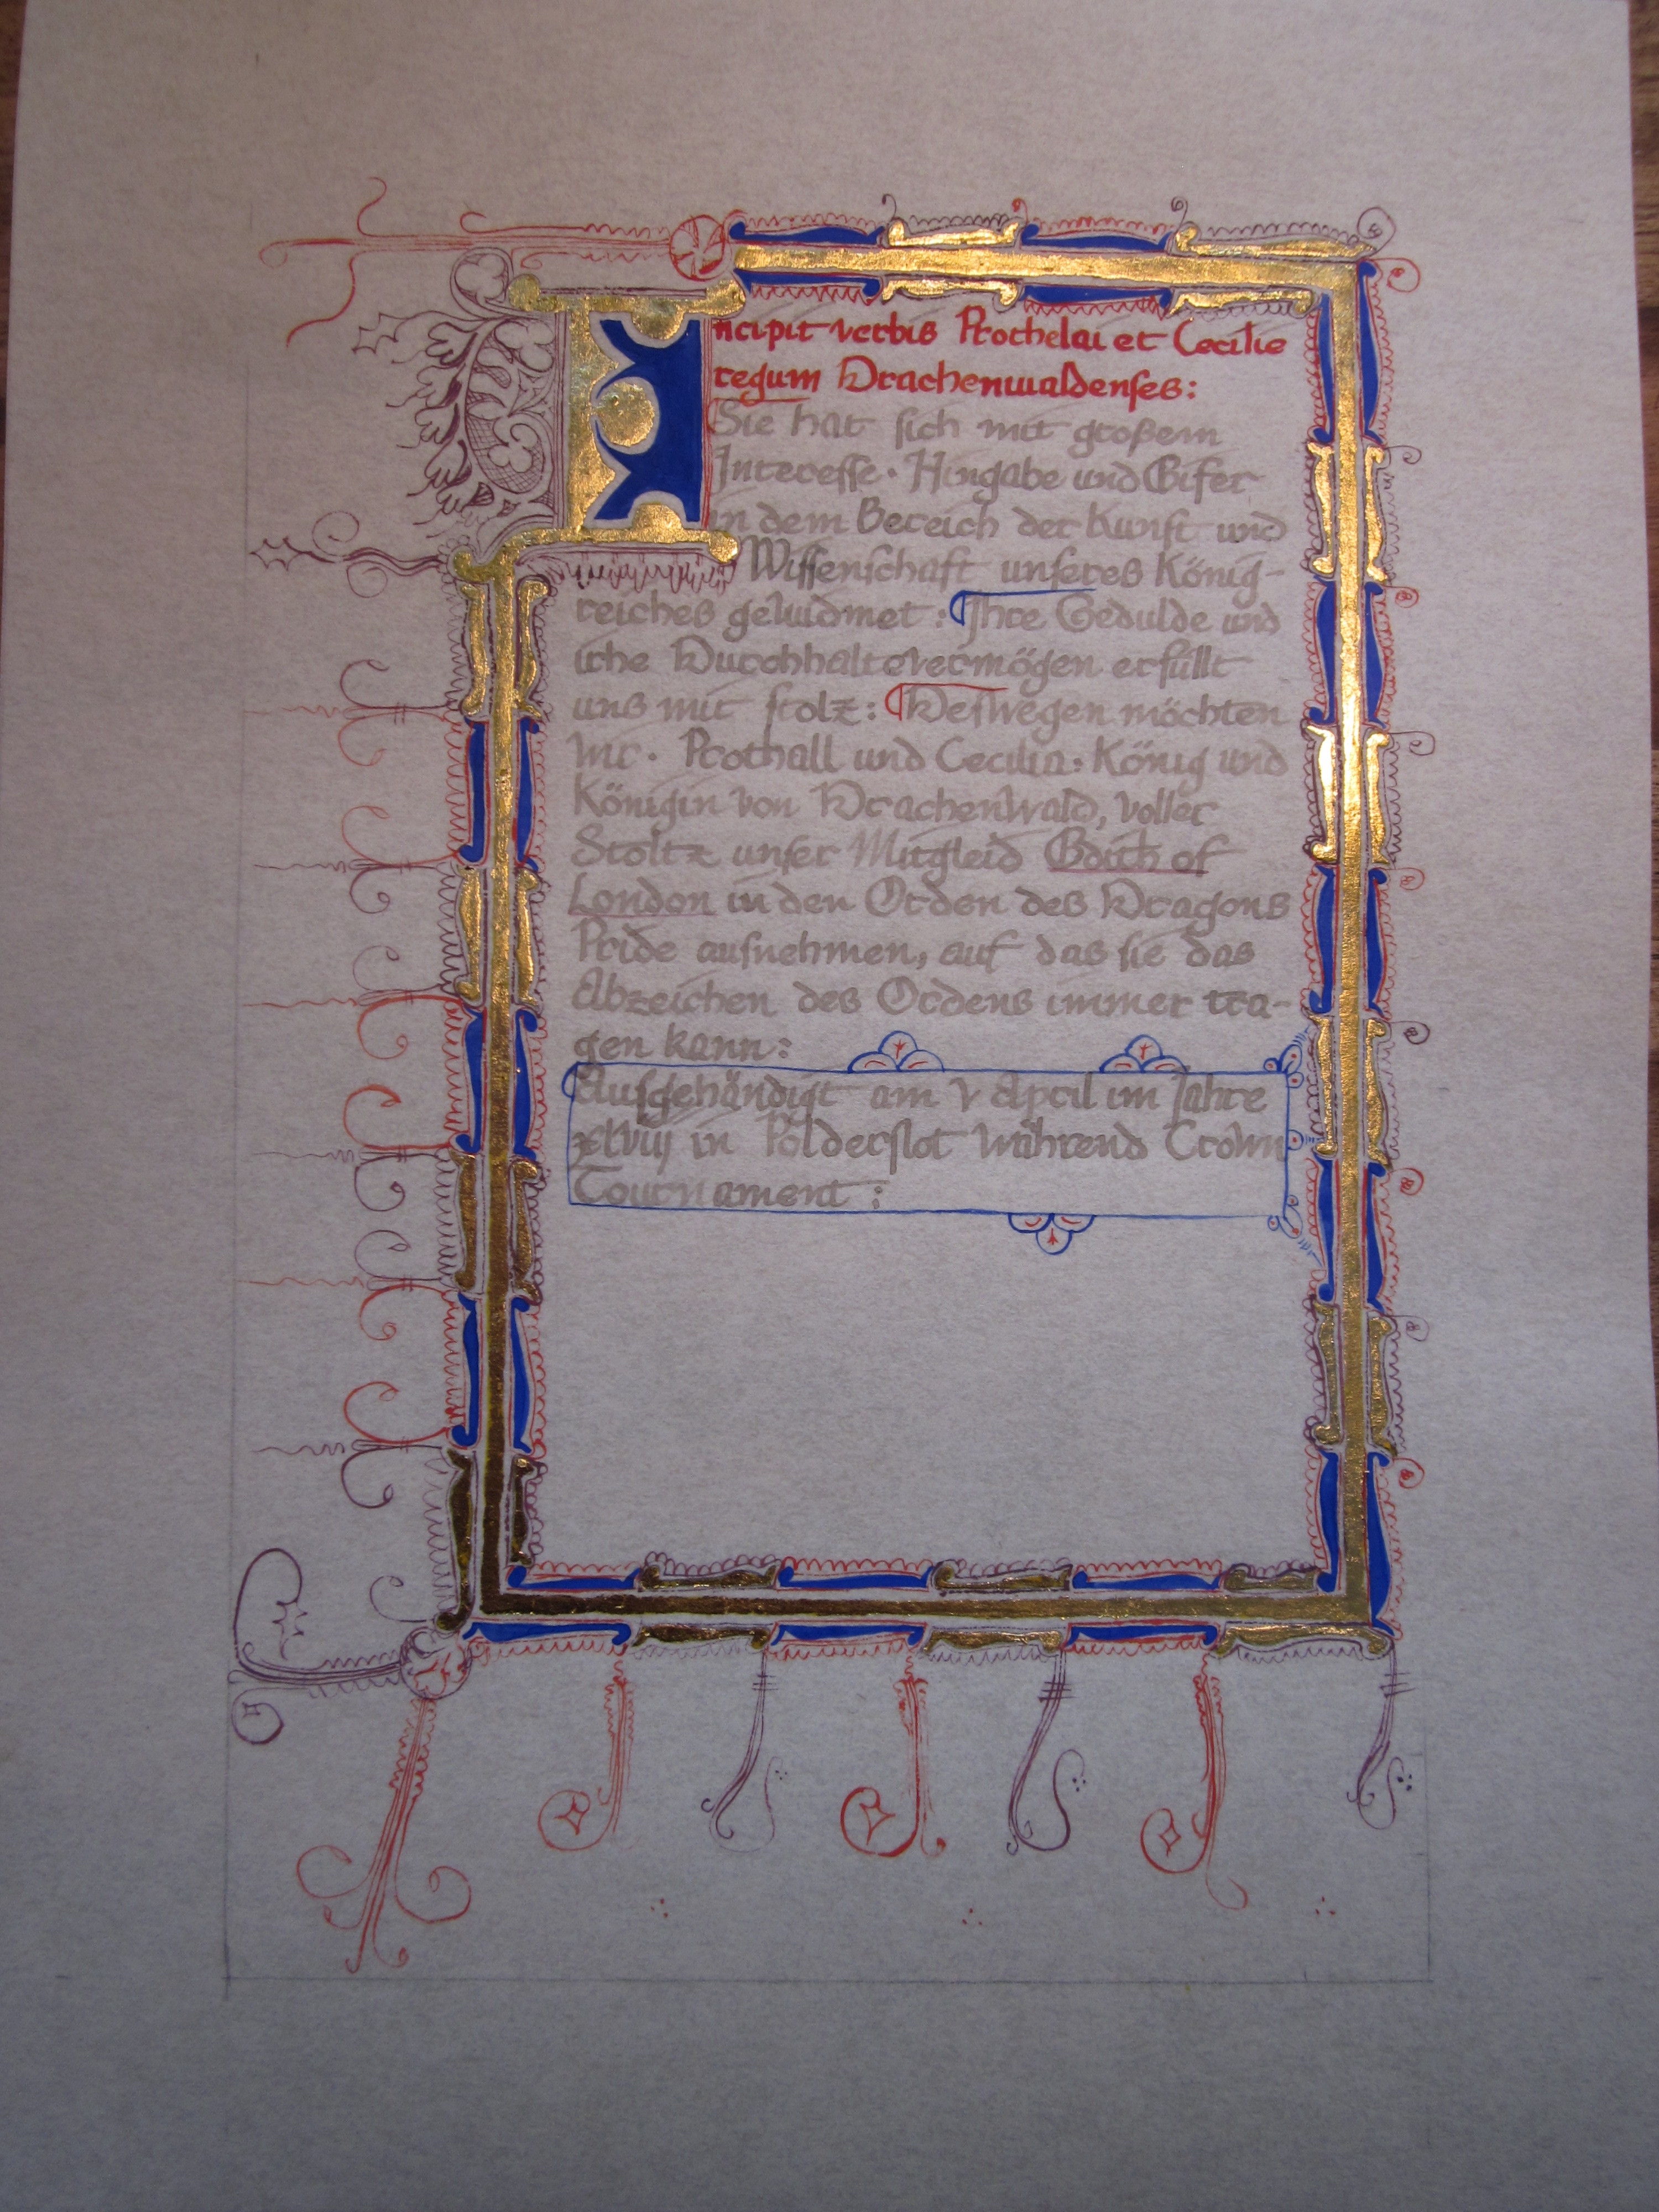 Incipit verbis Prothelai et Cecilie
regum Drachenwaldenses:
Sie hat sich mit großem
Interesse · Hingabe und Eifer
in dem Bereich der Kunst und
Wissenschaft unseres König-
reiches gewidmet: Ihre Gedulde und
irhe Durchhaltevermögen erfüllt
uns mit stolz: Deswegen möchten
wir · Prothall und Cecilia · König und
Königin von Drachenwald, voller
Stoltz unser Mitgleid Edith of
London in den Orden des Dragons
Pride aufnehmen, auf das sie das
Abzeichen des Ordens immer tra-
gen kann:
Ausgehändigt am v April im Jahre
xlviij in Polderslot während Crown
Tournament: